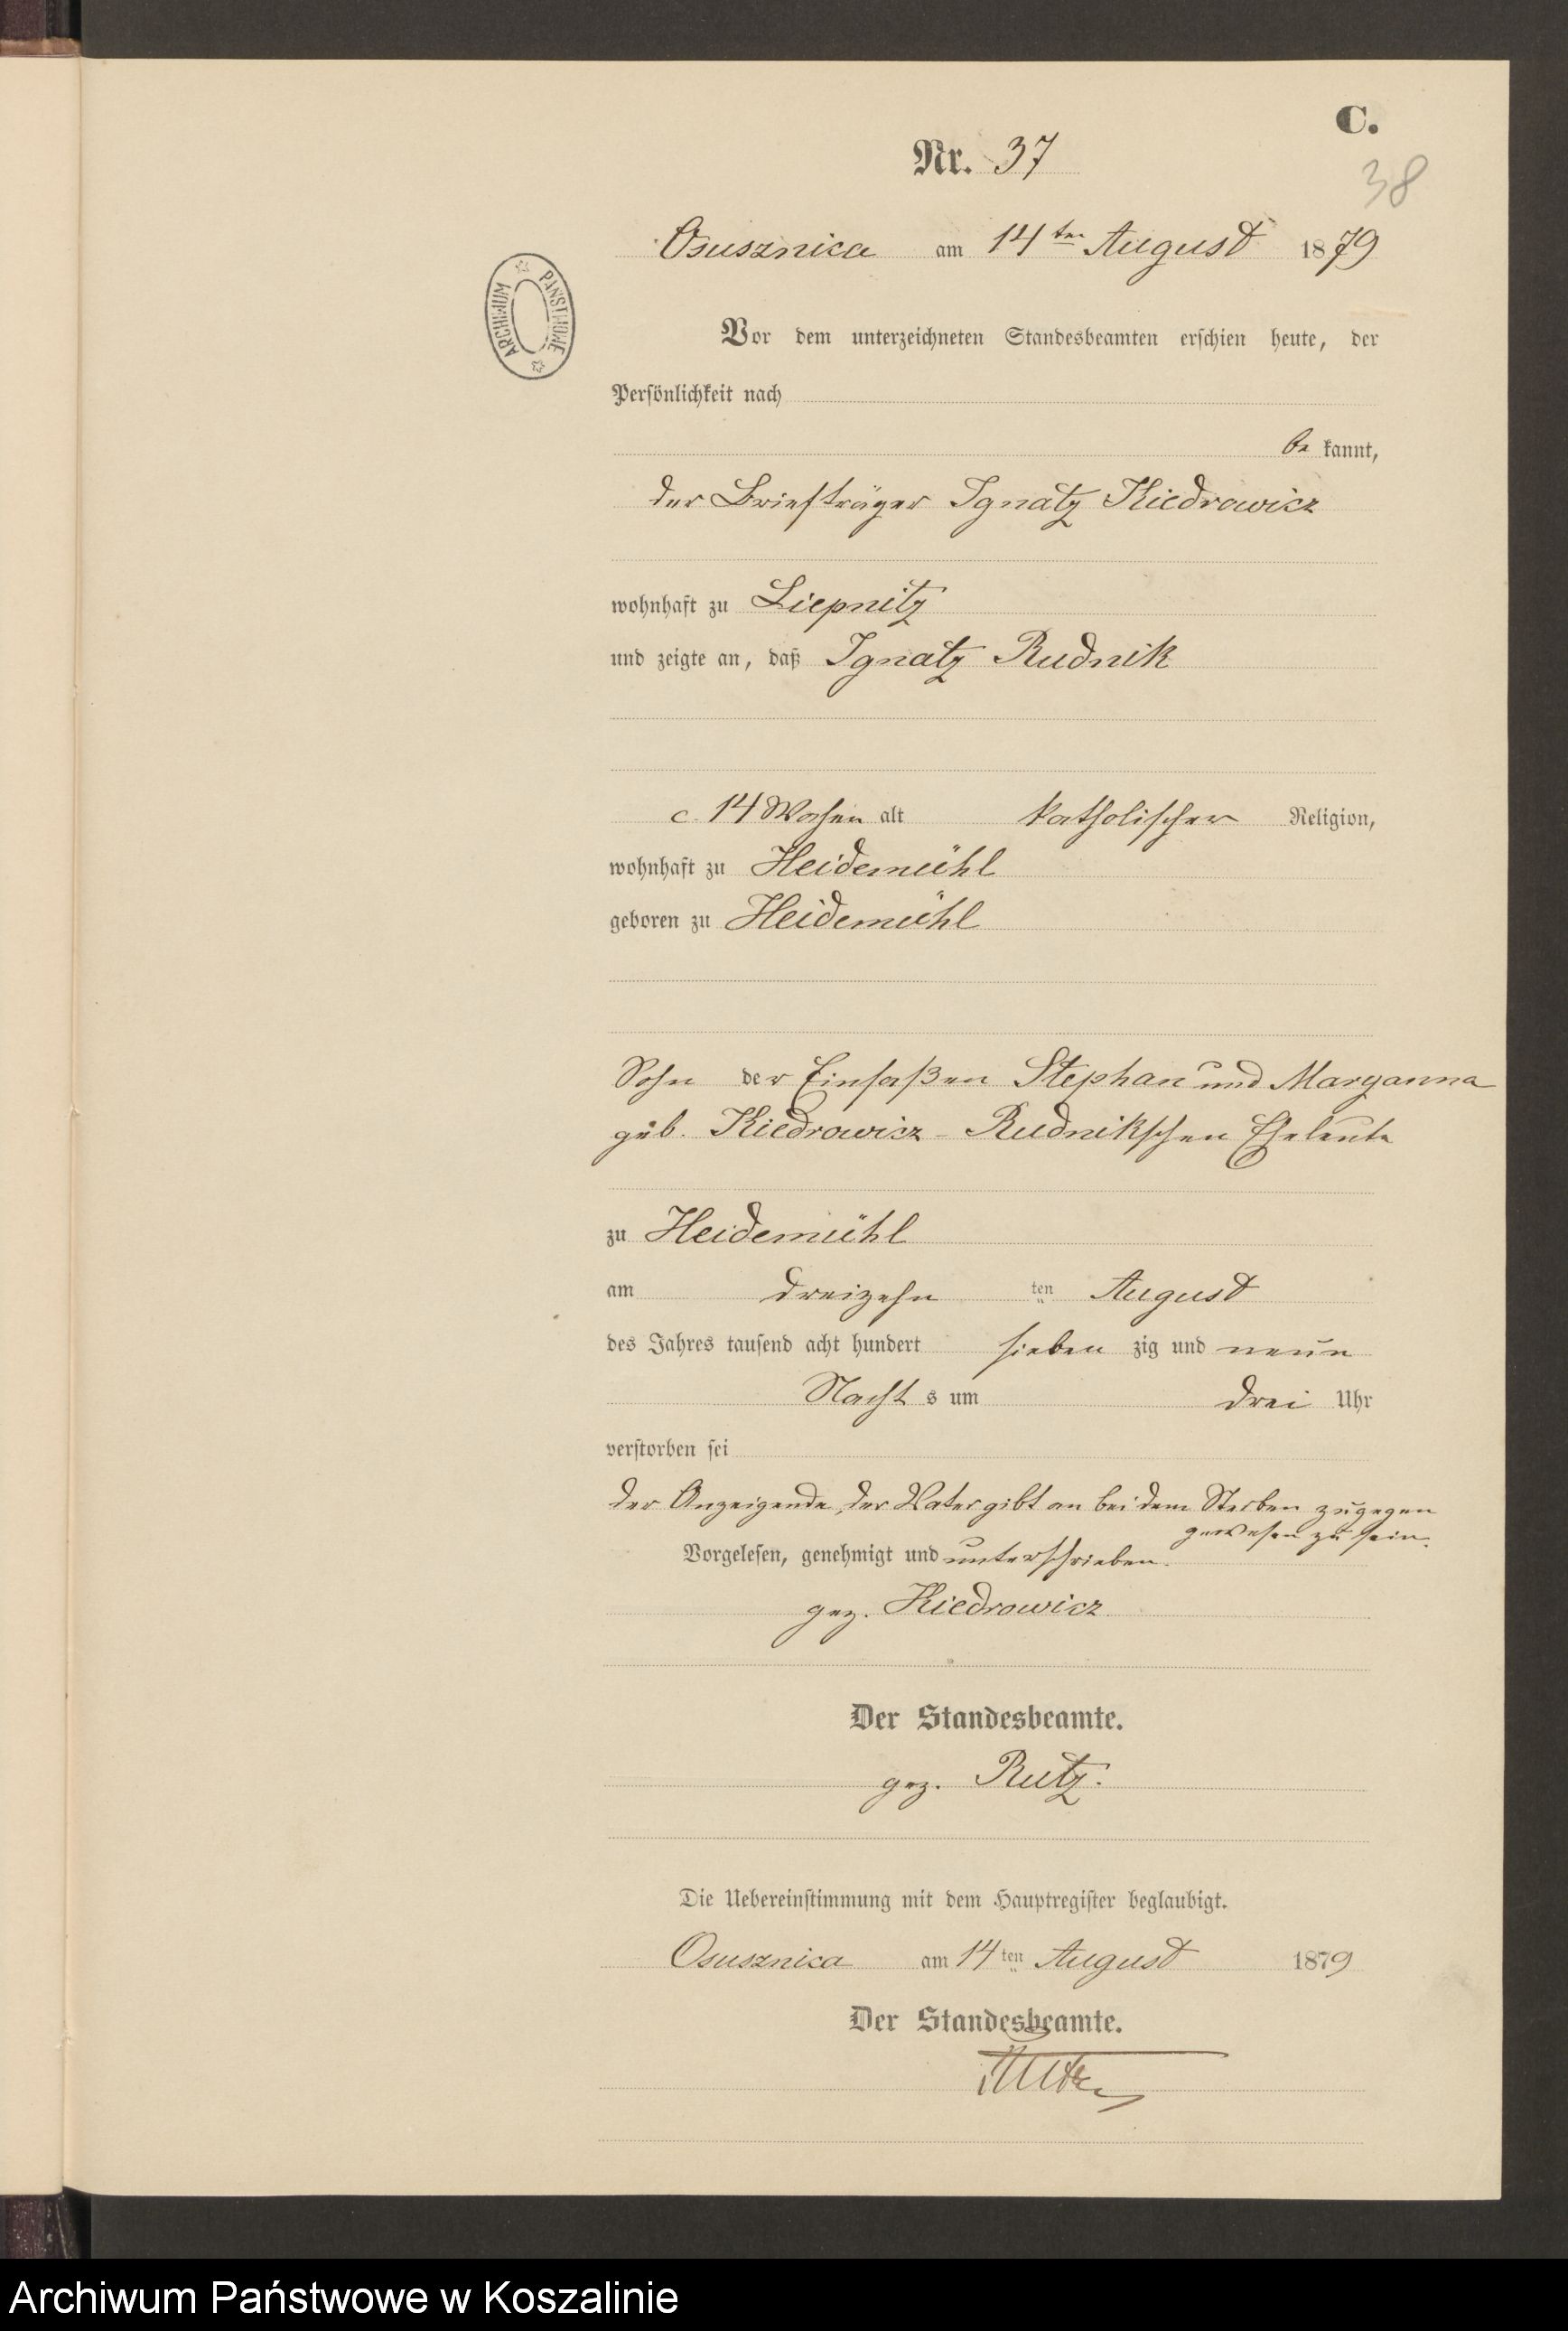 C.
Nr. 37
38
Osusznica am 14ten August 1879
ARCHIWUM PAŃSTWOWE
Vor dem unterzeichneten Standesbeamten erschien heute, der
Persönlichkeit nach
be kannt,
der Briefträger Ignatz Kiedrowicz
wohnhaft zu Liepnitz
und zeigte an, daß Ignatz Rudnik
c. 14 Wochen alt katholischer Religion,
wohnhaft zu Heidemühl
geboren zu Heidemühl
Sohn der Einsaßen Stephan und Maryanna
geb. Kiedrowicz - Rudnikschen Eheleute
zu Heidemühl
am dreizehn ten August
des Jahres tausend acht hundert sieben zig und neun
Nacht s um drei Uhr
verstorben sei
der Anzeigende, der Vater gibt an bei dem Sterben zugegen
gewesen zu sein.
Vorgelesen, genehmigt und unterschrieben.
gez. Kiedrowicz
Der Standesbeamte.
gez. Rutz.
Die Uebereinstimmung mit dem Hauptregister beglaubigt.
Osusznica am 14 ten August 1879
Der Standesbeamte.
Rutz
Archiwum Państwowe w Koszalinie